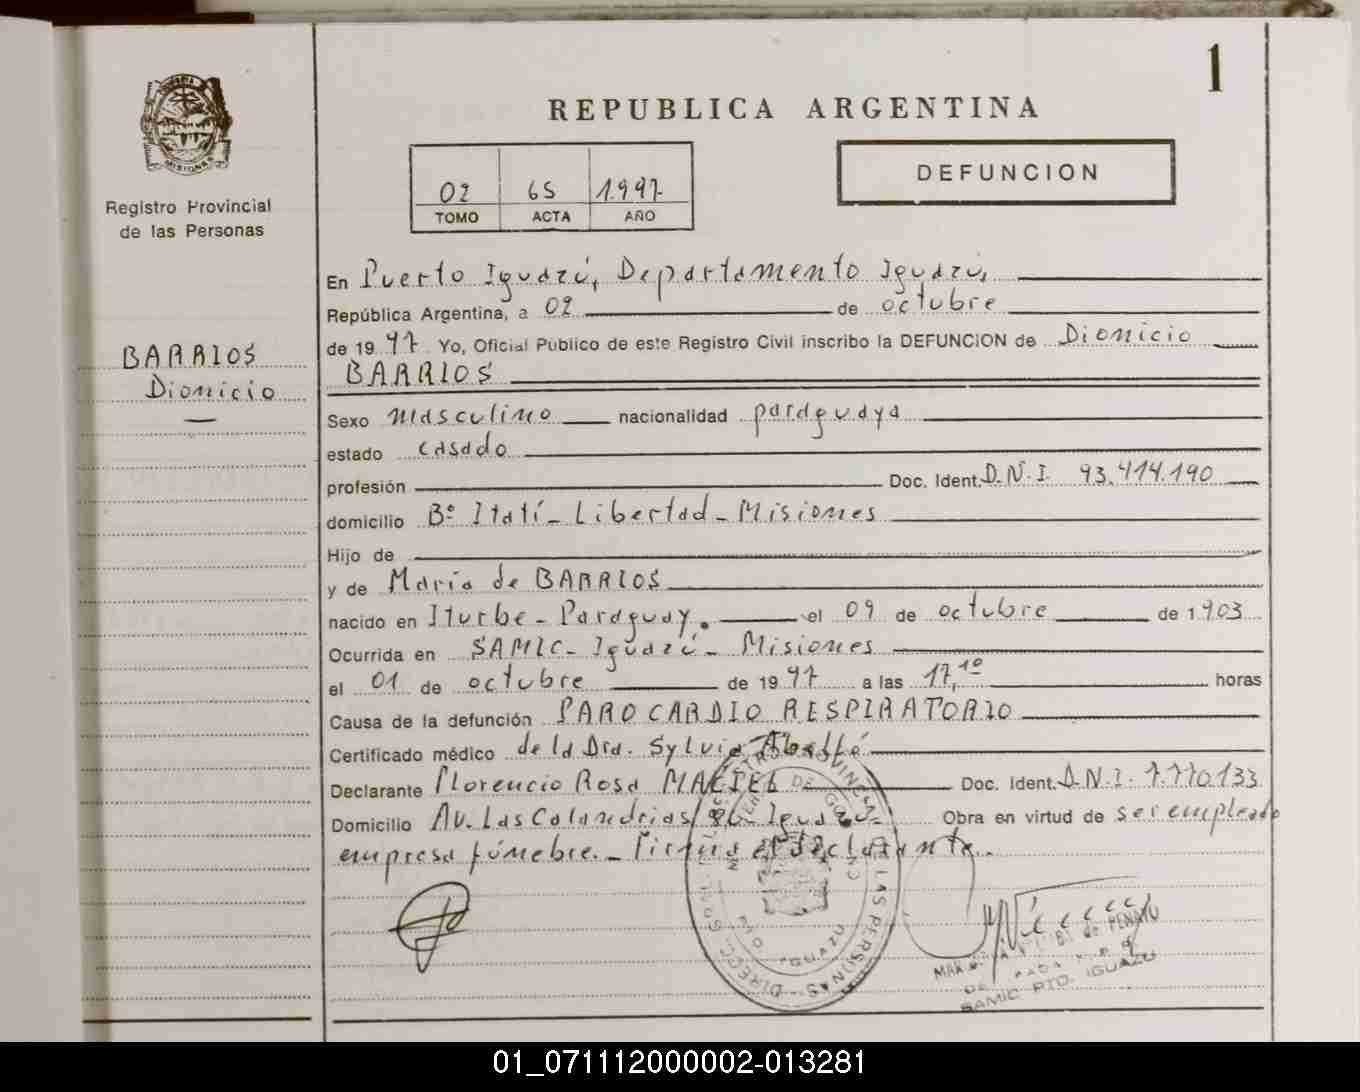 1
REPUBLICA ARGENTINA
MISIONES
Registro Provincial
de las Personas
BARRIOS
Dionicio
02 65 1.997
TOMO ACTA AÑO
DEFUNCION
En Puerto Iguazú, Departamento Iguazú,
República Argentina, a 02 de octubre
de 1997 Yo, Oficial Público de este Registro Civil inscribo la DEFUNCION de Dionicio
BARRIOS
Sexo masculino nacionalidad paraguaya
estado casado
profesión Doc. Ident. D.N.I. 93.414.190
domicilio Bº Itatí - Libertad - Misiones
Hijo de
y de María de BARRIOS
nacido en Iturbe - Paraguay. el 09 de octubre de 1903
Ocurrida en SAMIC - Iguazú - Misiones
el 01 de octubre de 1997 a las 17,10 horas
Causa de la defunción PARO CARDIO RESPIRATORIO
Certificado médico de la Dra. Sylvia
Declarante Florencio Rosa MACIEL Doc. Ident. D.N.I. 7.770.133
Domicilio Av. Las Calandrias Iguazú - Obra en virtud de ser empleado
empresa fúnebre. - Firma el declarante.
DIRECC. GRAL. REGISTRO PROVINCIAL DE LAS PERSONAS
IGUAZU
de PENAYO
SAMIC PTO. IGUAZU
01_071112000002-013281